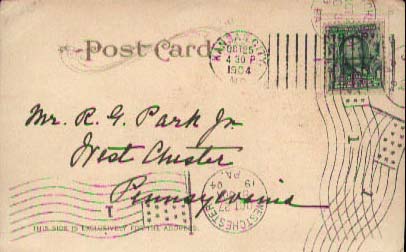 Post Card
KANSAS CITY
OCT 25
4 30 P
1904
MO.
Mr. R. G. Park Jr.
West Chester
Pennsylvania
WEST CHESTER
PA.
THIS SIDE IS EXCLUSIVELY FOR THE ADDRESS.
1
1